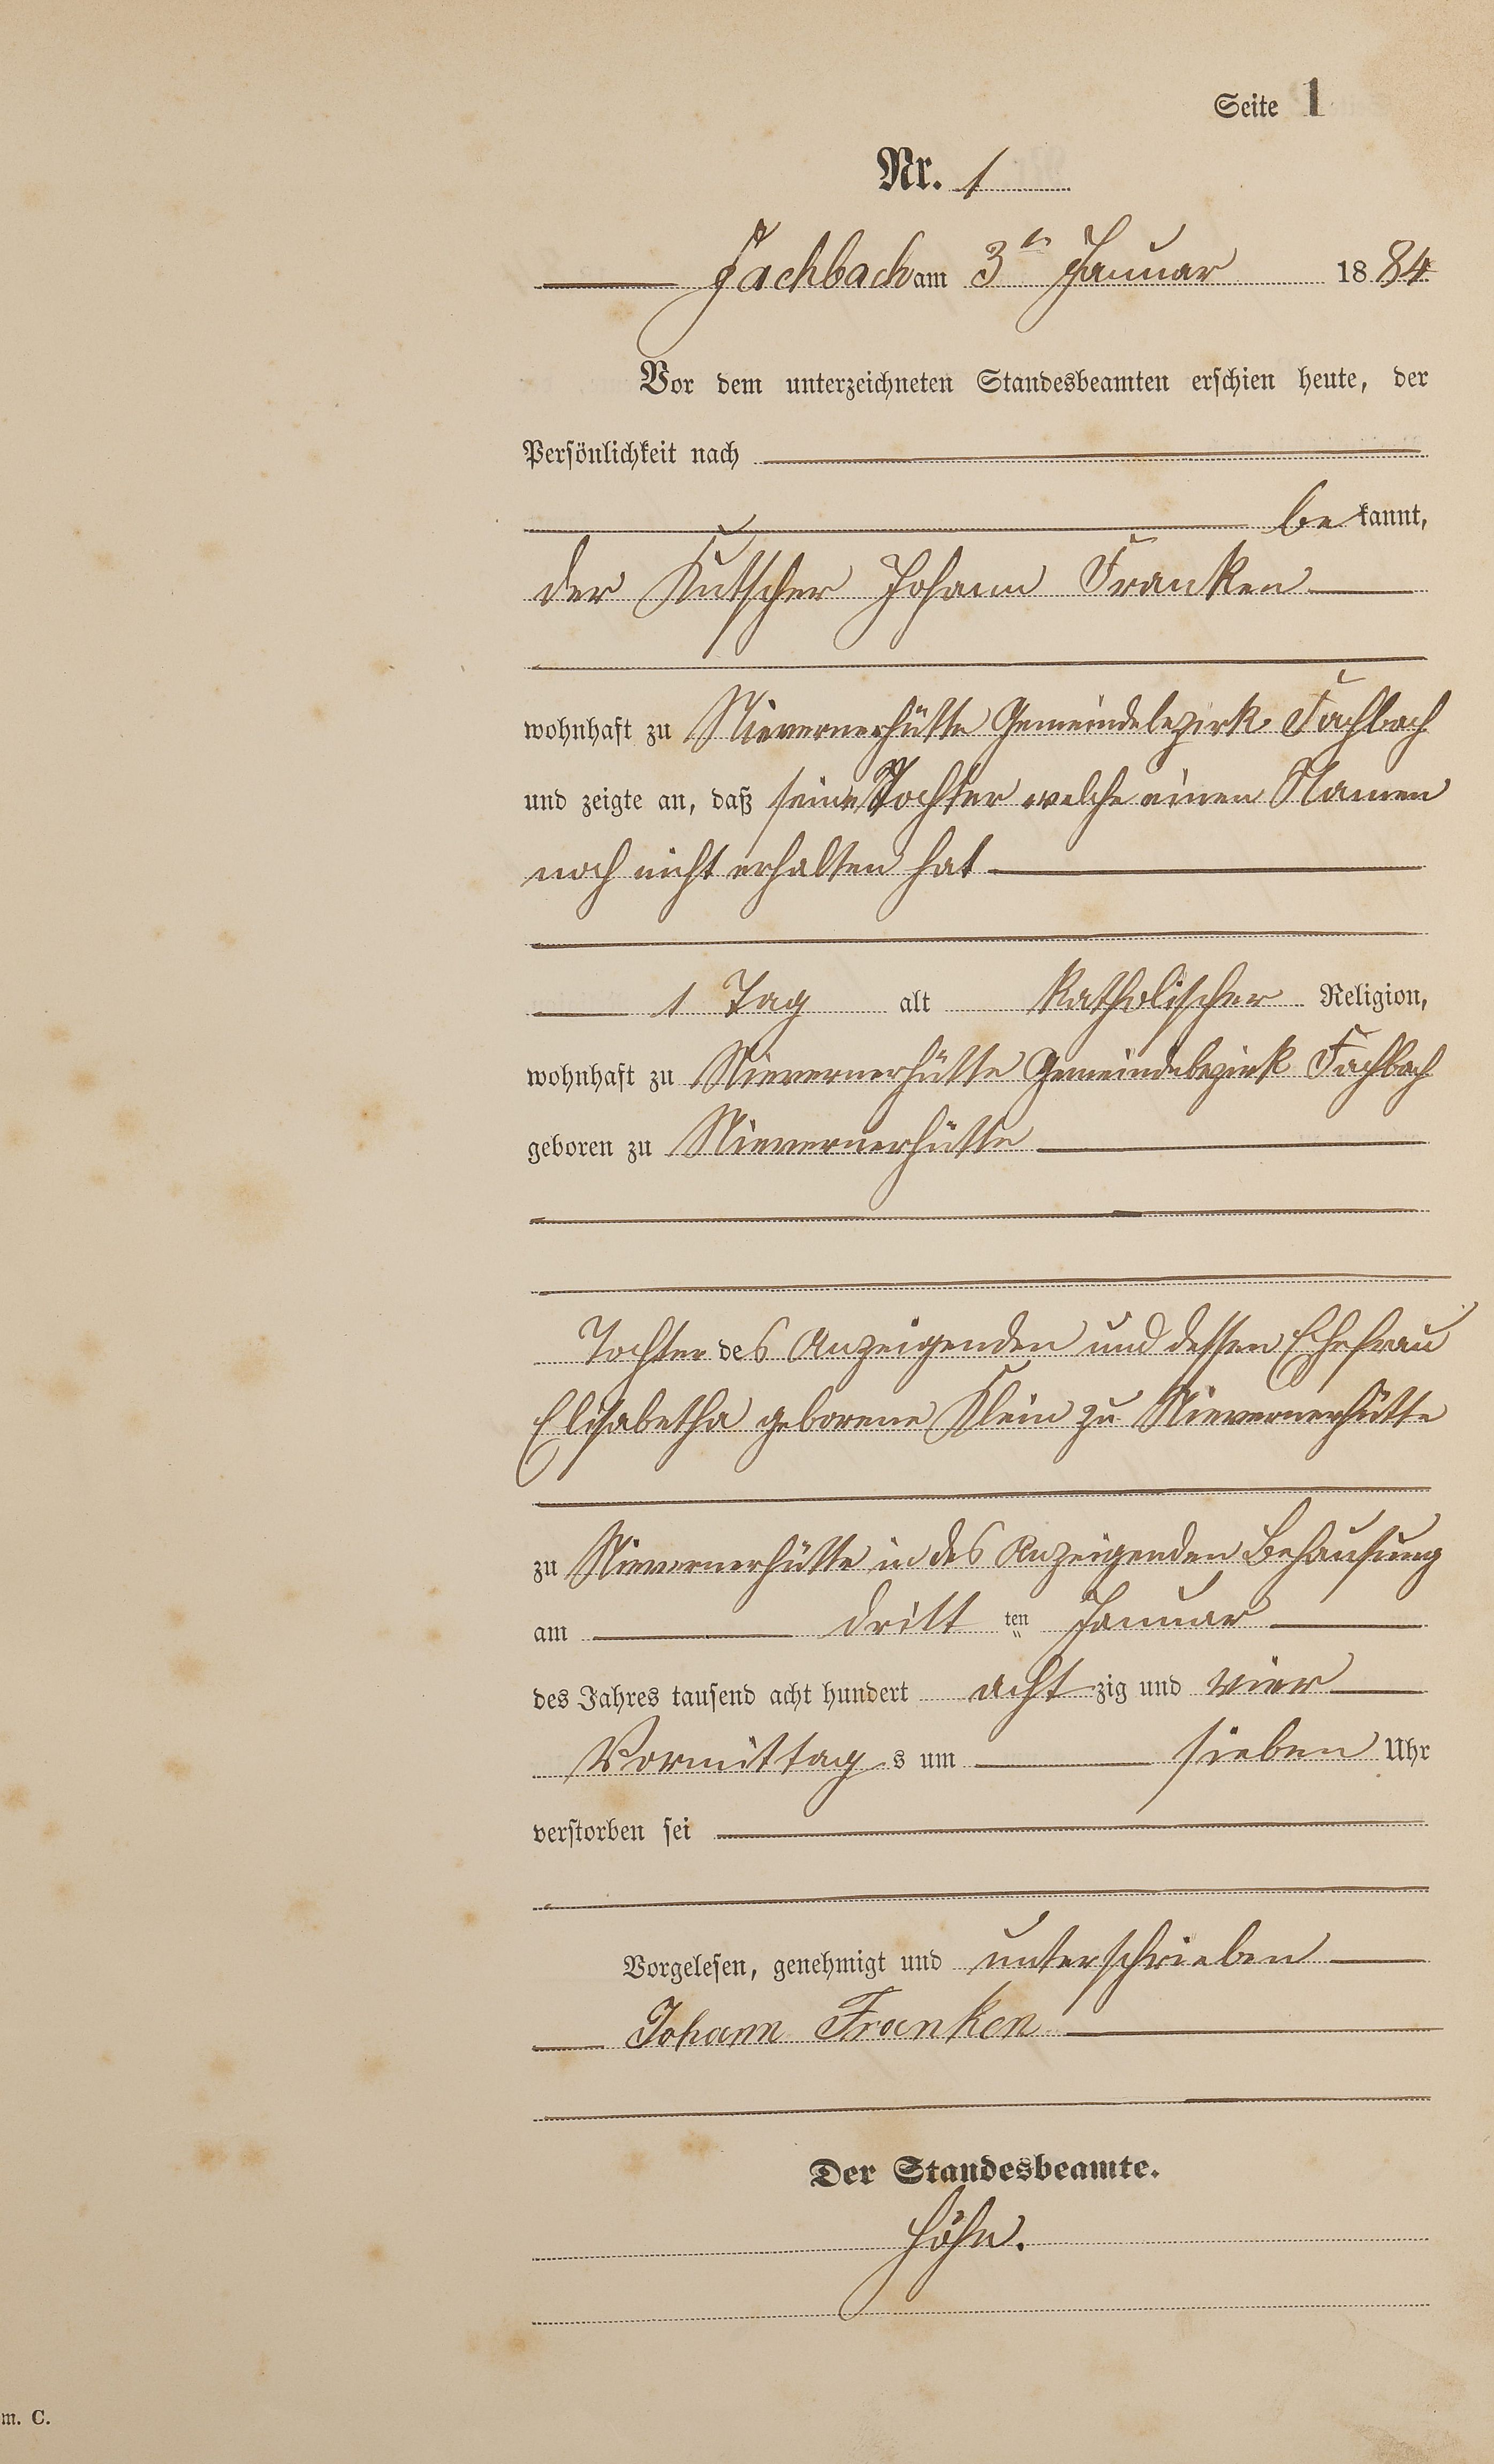 Seite 1
Nr. 1
Fachbach am 3ten Januar 1884
Vor dem unterzeichneten Standesbeamten erschien heute, der
Persönlichkeit nach
be kannt,
der Kutscher Johann Franken
wohnhaft zu Nievernerhütte Gemeindebezirk Fachbach
und zeigte an, daß seine Tochter welche einen Namen
noch nicht erhalten hat
1 Tag alt katholischer Religion,
wohnhaft zu Nievernerhütte Gemeindebezirk Fachbach
geboren zu Nievernerhütte
Tochter des Anzeigenden und dessen Ehefrau
Elisabetha geborene Klein zu Nievernerhütte
zu Nievernerhütte in des Anzeigenden Behausung
am dritt ten Januar
des Jahres tausend acht hundert acht zig und vier
Vormittag s um sieben Uhr
verstorben sei
Vorgelesen, genehmigt und unterschrieben
Johann Franken
Der Standesbeamte.
Höhn.
m. C.